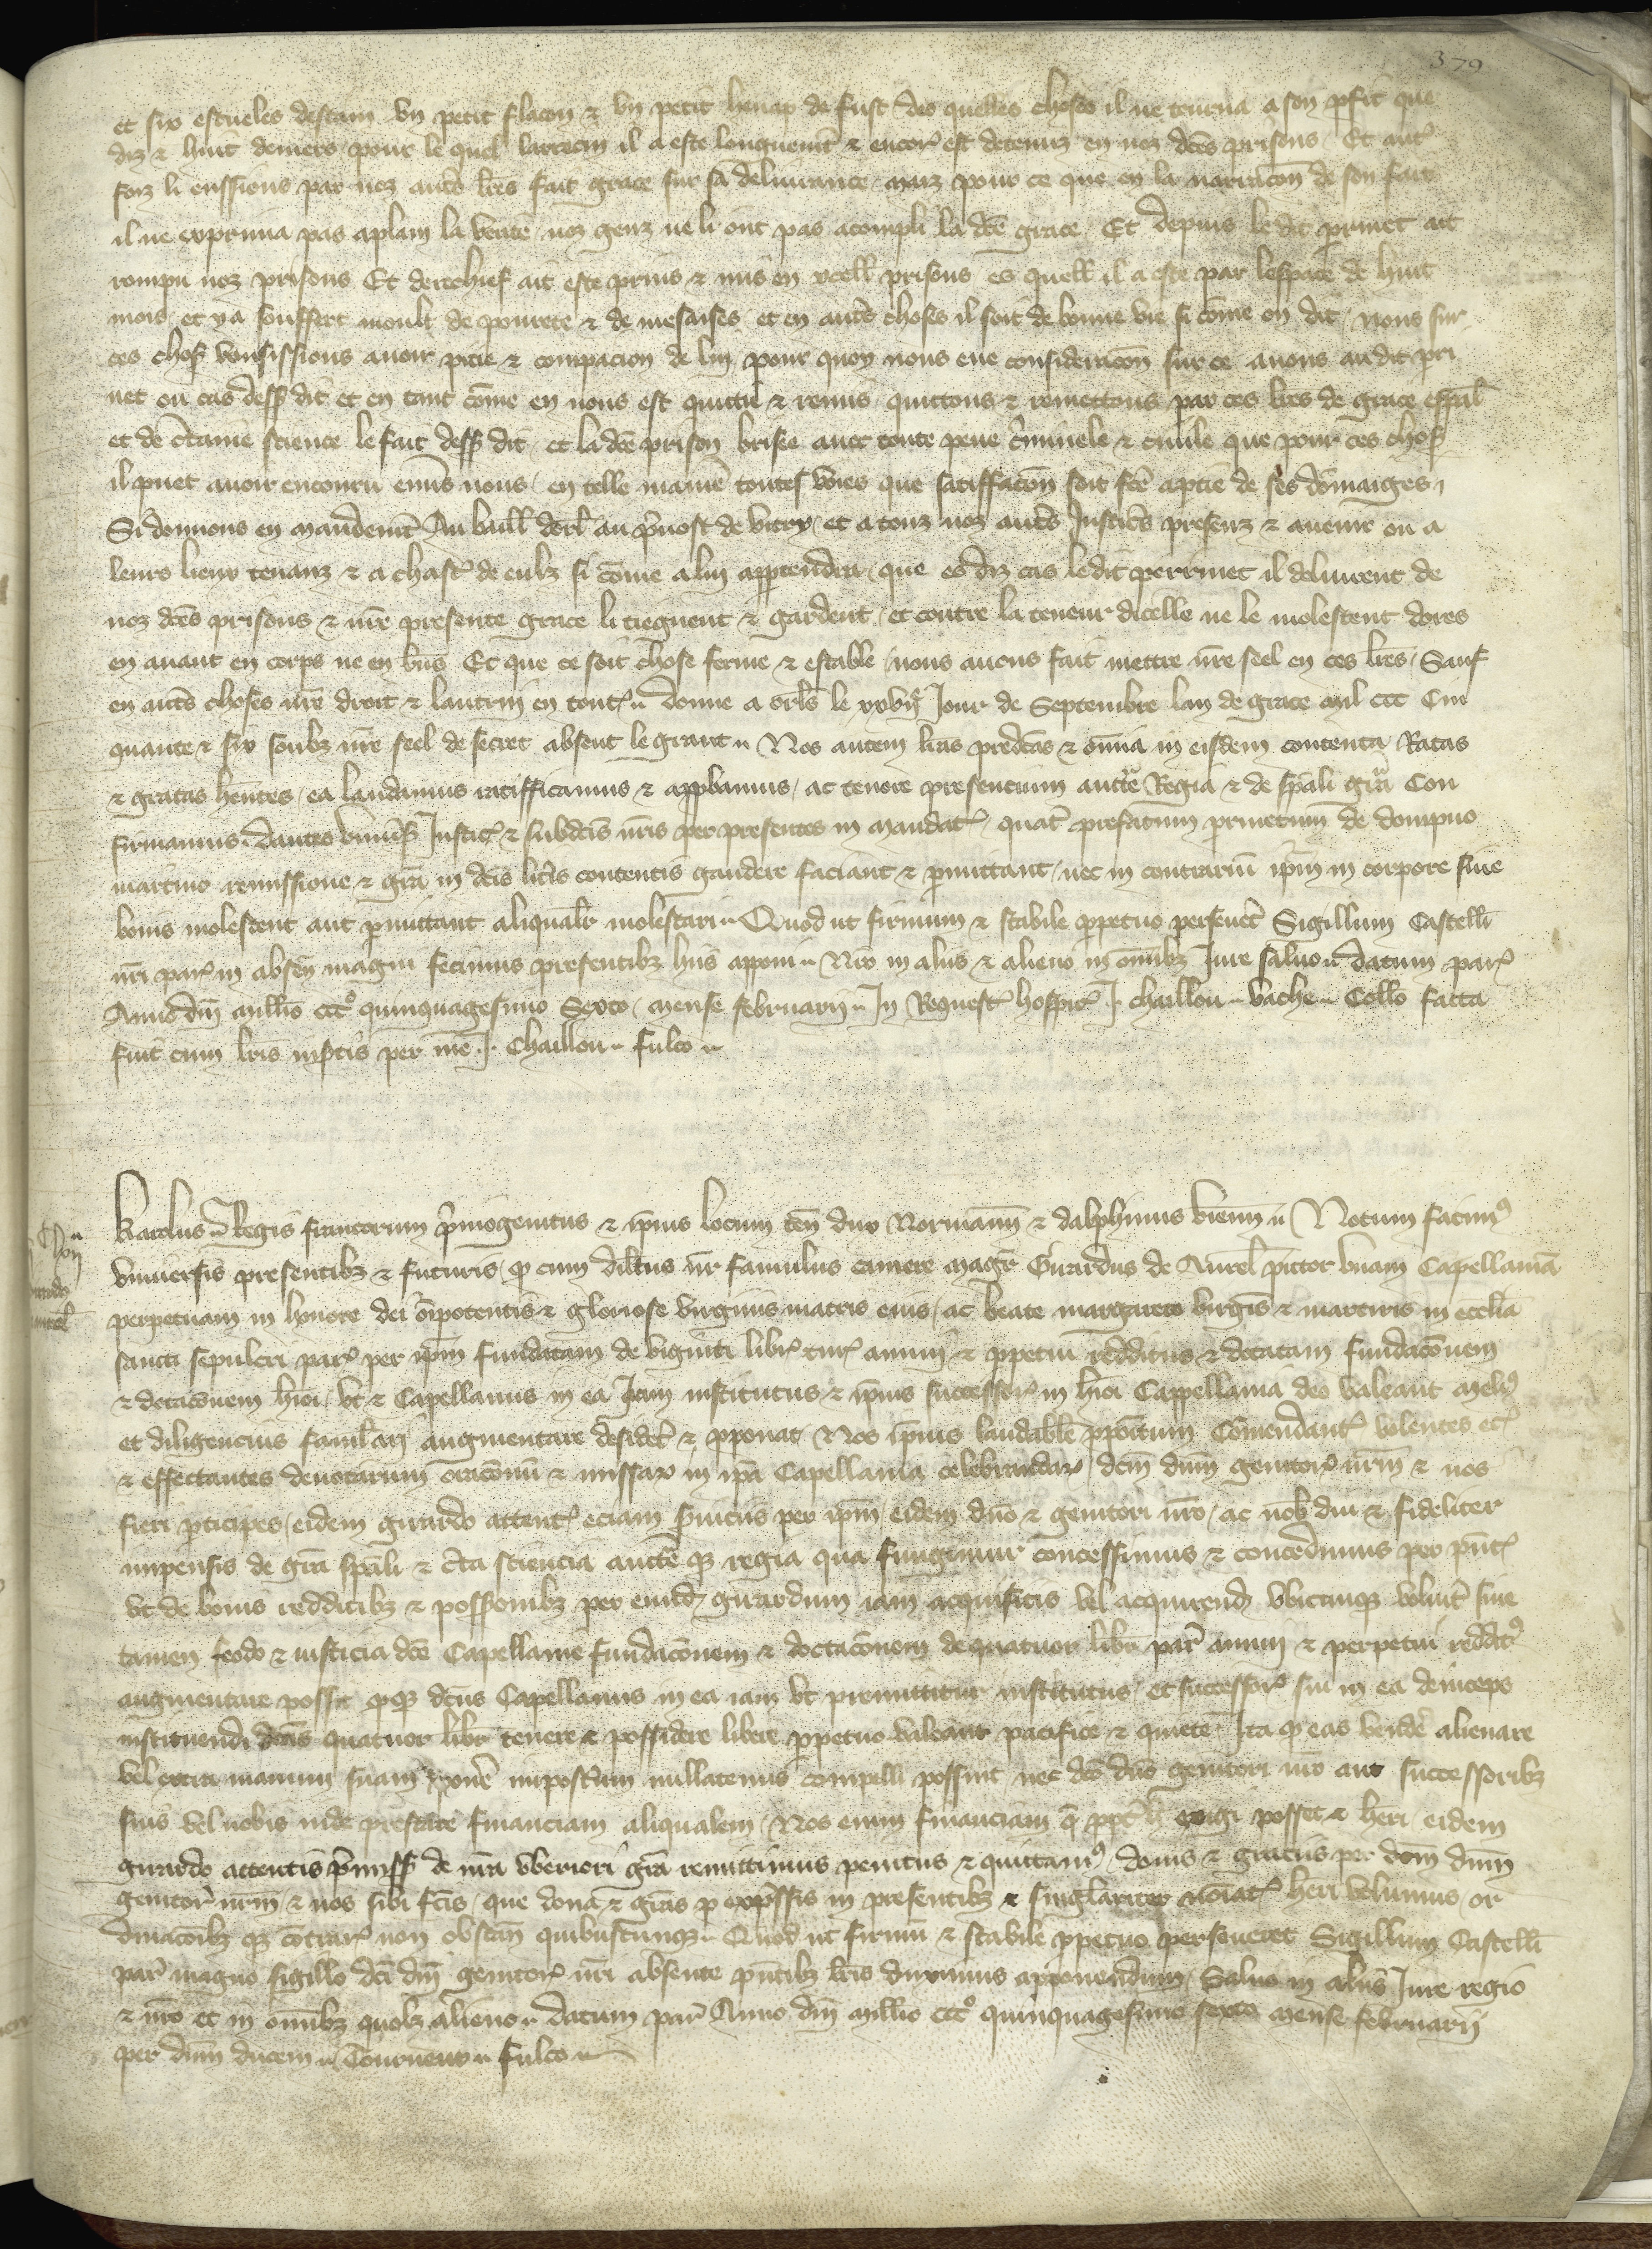 379
et six escueles destain un petit flacon & un petit henap de fust des quelles choses il ne tourna a son pfit que
diz & huit deniers pour le quel larrecin il a este longuemt & encor est detenuz en noz dces prisons Et autr
foiz li eussions par noz autrs lres fait grace sur sa delivrance maiz pour ce que en la narracon de son fait
il ne exprima pas aplain la verite noz genz ne li ont pas acompli la dce grace Et depuis le dit prinet ait
rompu noz prisons Et derechief ait este prins & mis en ycell prisons es quell il a este par lespace de huit
mois et y a souffert moult de povrete & de mesaises et en autrs choses il soit de bonne vie si come on dit nous sur
ces chos vousissions avoir pitie & compacion de lui pour quoy nous eue consideracon sur ce avons audit pri
net ou cas dess dit et en tant come en nous est quitte & remis quittons & remettons par ces lres de grace espal
et de ctaine science le fait dess dit et la dce prison brisee avec toute peine criminele & civile que pour ces chos
il puet avoir encouru envs nous en telle manie toutes voies que satiffacon soit fce aptie de ses domaiges
Si donnons en mandemt Au baill dorl au pvost de vitry et a touz noz autrs Justicrs presenz & avenir ou a
leurs lieux tenanz & a chasc de eulz si come a lui apptendra que es diz cas ledit perrinet il delivrent de
noz dces prisons & nre presente grace li tiegnent & gardent et contre la teneur dicelle ne le molestent dores
en avant en corps ne en bns Et que ce soit chose ferme & estable nous avons fait mettre nre seel en ces lres Sauf
en autrs choses nre droit & lautrui en tout Donne a orls le xxvij Jour de Septembre lan de grace mil ccc Cin
quante & six soubz nre seel de secret absent le grant Nos autem lras predcas & omia in eisdem contenta Ratas
& gratas hentes ea laudamus ratifficamus & appbamus ac tenore presencium aucte Regia & de spali gra Con
firmamus Dantes univs Justic & subdcis nris per presentes in mandat quat prefatum prinetum de dompno
martino remissione & gra in dcis litis contentis gaudere faciant & pmittant nec in contrariu ipm in corpore sive
bonis molestent aut pmittant aliqualr molestari Quod ut firmum & stabile ppetuo persevet Sigillum Castelli
nri par in absen magni fecimus presentibz hiis apponi Nro in aliis & alieno in omibz Jure salvo Datum par
Anno dni millio ccc quinquagesimo Sexto mense februarii In Request hospic J. chaillou vache Collo facta
fuit cum lris insctis per me J. Chaillou fulco
Karolus Regis francorum pmogenitus & ipius locum ten dux Normann & dalphinus vienn Notum facim
universis presentibz & futuris q cum dilcus nr famulus camere magr Girardus de Aurel pictor unam Capellaniā
perpetuam in honore dei oipotentis & gloriose virginis matris eius ac beate margarete virgis & martiris in ecclia
sancti sepulcri par per ipm fundatam de viginti libr tur annui & ppetui redditus & dotatam fundacoem
& dotacoem hioi ut & Capellanus in ea Jam institutus & ipius successor in hioi Cappellania deo valeant meli
et diligencius famlari augmentare desidet & pponat Nos ipius laudabile ppoitum Comendant volentes ec
& effectantes devotarum oracionu & missar in ipa Capellania celebrandar dcm dnm genitor nrm & nos
fieri pticipes eidem girardo attent eciam sviciis per ipm eidem dno & genitori nro ac nob diu & fideliter
impensis de gra spali & cta sciencia aucte q regia qua fungimur concessimus & concedimus per pnt
ut de bonis redditibz & possonibz per eund girardum iam acquisitis vel acquirend ubicunq volut sine
tamen feodo & iusticia dce Capellanie fundacoem & doctacoem de quatuor libr par annui & perpetui reddit
augmentare possit q q dcus Capellanus in ea iam ut premittitur institutus et successor sui in ea deinceps
instituendi dcas quatuor libr tenere & possidere libere ppetuo valeant pacifice & quiete Ita q eas vende alienare
vel extra manum suam ponere impostum nullatenus compelli possint nec dco dno genitori nro aut successoribz
suis vel nobis inde prestare financiam aliqualem Nos enim financiam q ppt exigi posset & heri eidem
girardo attentis pmiss de nra uberiori gra remittimus penitus & quittam donis & graciis per dcm dnm
genitor nrm & nos sibi fcis que dona & gras p expssis in presentibz & singlariter noiat heri volumus or
dinacoibz q contrar non obstan quibuscunq Quod ut firmu & stabile ppetuo perseveret Sigillum Castelli
par magno sigillo dci dni genitor nri absente pntibz lris duximus apponendum Salvo in aliis Jure regio
& nro et in omibz quolz alieno Datum par Anno dni millio ccc quinquagesimo sexto mense februarii
per dnm ducem Tourneur fulco